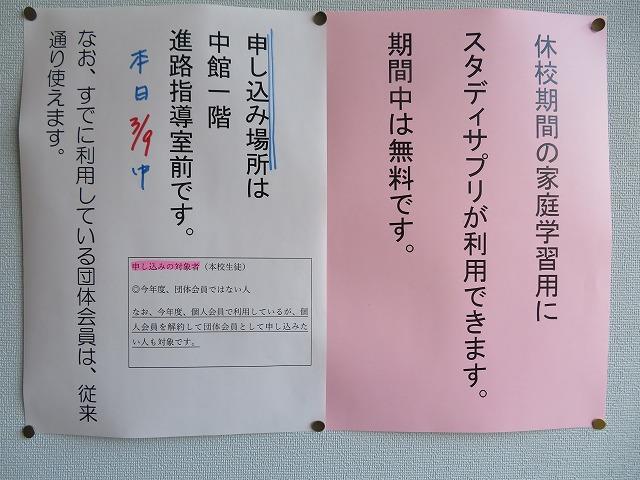 休校期間の家庭学習用に
スタディサプリが利用できます。
期間中は無料です。
申し込み場所は
中館一階
進路指導室前です。
本日3/9中
申し込みの対象者（本校生徒）
◎今年度、団体会員ではない人
なお、今年度、個人会員で利用しているが、個
人会員を解約して団体会員として申し込みた
い人も対象です。
なお、すでに利用している団体会員は、従来
通り使えます。